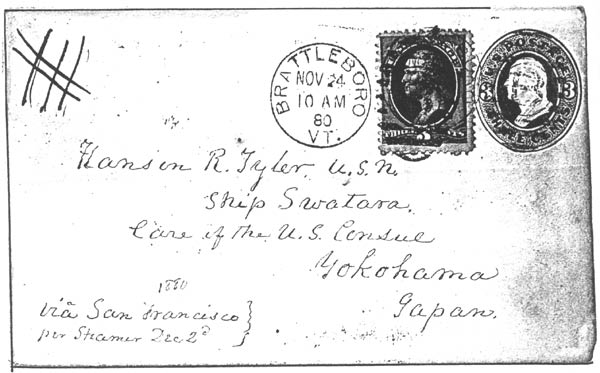 BRATTLEBORO
NOV 24
10 AM
80
VT.
3 3
Hanson R. Tyler. U.S.N.
Ship Swatara.
Care of the U.S. Consul
Yokohama
Japan.
1880
via San Francisco
per Steamer Dec 2d